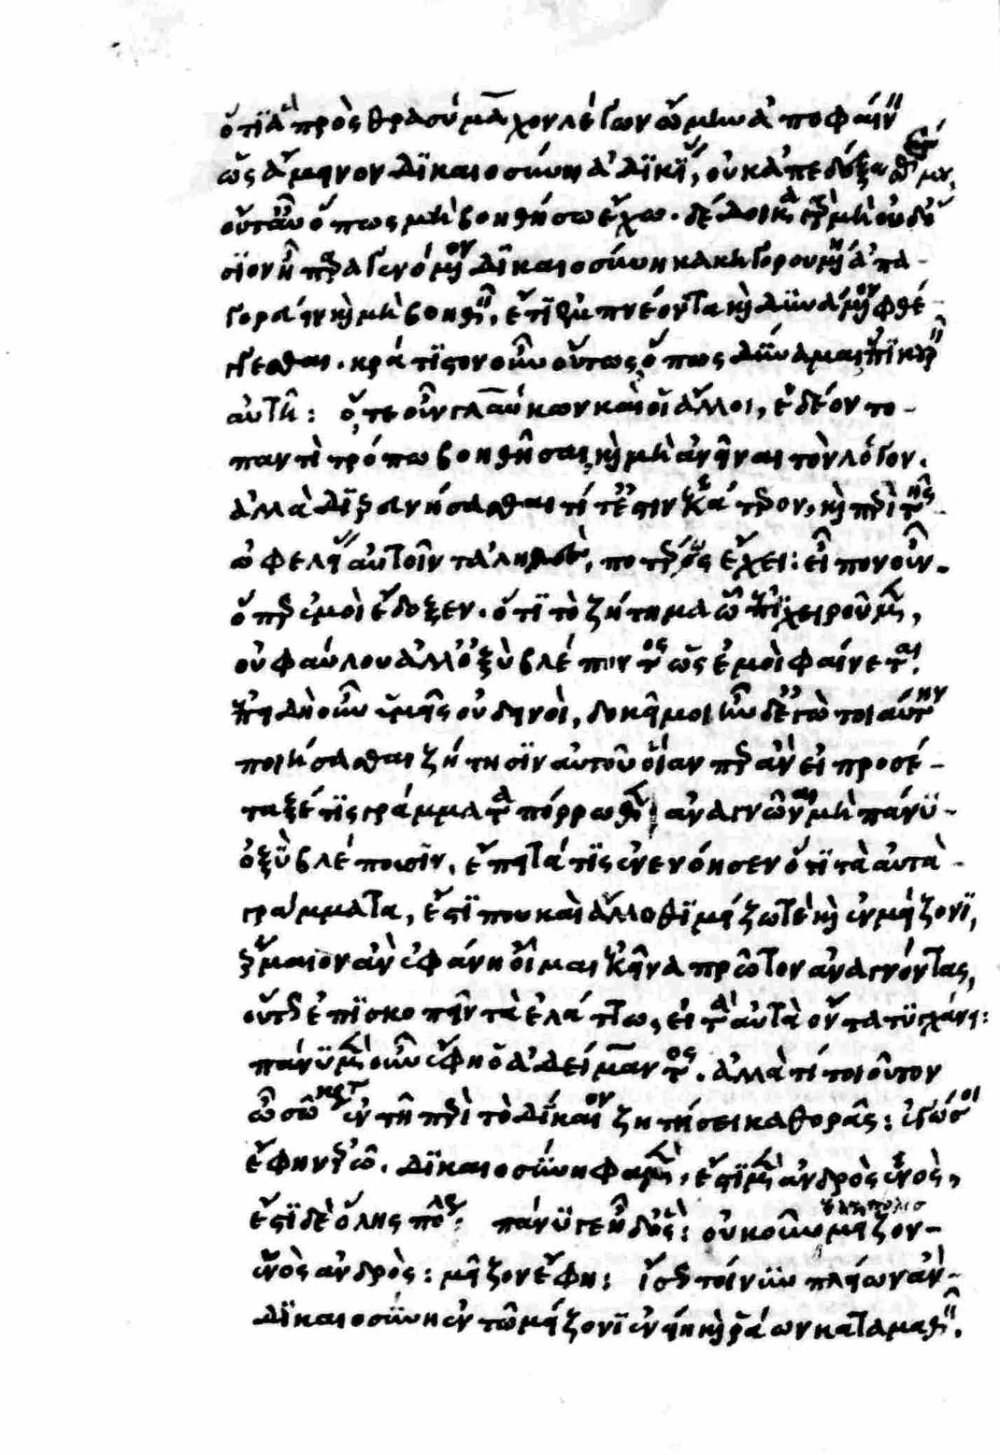 ὅτι ἃ πρὸς θρασύμαχον λέγων ὤμην ἀποφαίνειν
ὡς ἄμεινον δικαιοσύνη ἀδικίας, οὐκ ἀπεδέξασθέ μου,
οὔτ' αὖ ὅπως μὴ βοηθήσω ἔχω. δέδοικα γὰρ μὴ οὐδ' ὅ
σιον ᾖ παραγενόμενον δικαιοσύνη κακηγορουμένη ἀπα-
γορεύειν καὶ μὴ βοηθεῖν, ἔτι ἐμπνέοντα καὶ δυνάμενον φθέ-
γγεσθαι. κράτιστον οὖν οὕτως ὅπως δύναμαι ἐπικουρεῖν
αὐτῇ: ὅ, τε οὖν γλαύκων καὶ οἱ ἄλλοι, ἐδέοντο
παντὶ τρόπω βοηθῆσαι, καὶ μὴ ἀνεῖναι τὸν λόγον.
ἀλλὰ διερευνήσασθαι τί τέ ἐστιν ἑκάτερον, καὶ περὶ τῆς
ὠφελείας αὐτοῖν τἀληθὲς, ποτέρως ἔχει: εἶπον οὖν
ὅπερ ἐμοὶ ἔδοξεν. ὅτι τὸ ζήτημα ὧ ἐπιχειροῦμεν,
οὐ φαύλου ἀλλ' ὀξὺ βλέποντος ὡς ἐμοὶ φαίνεται.
ἐπειδὴ οὖν ἡμεῖς οὐ δεινοὶ, δοκεῖ μοι ἦν δ' ἐγὼ τοιαύτην
ποιήσασθαι ζήτησιν αὐτοῦ οἵαν περ ἂν εἰ προσέ-
ταξέ τις γράμματα πόρρωθεν ἀναγνῶναι μὴ πάνυ
ὀξὺ βλέπουσιν. ἔπειτά τις ἐνενόησεν ὅτι τὰ αὐτὰ
γράμματα, ἔστι που καὶ ἄλλοθι μείζω τὲ καὶ ἐν μείζονι,
ἕρμαιον ἂν ἐφάνη οἶμαι ἐκεῖνα πρῶτον ἀναγνόντας,
οὕτως ἐπισκοπεῖν τὰ ἐλάττω, εἰ τὰ αὐτὰ ὄντα τυγχάνει:
πάνυ μὲν οὖν ἔφη ὁ ἀδείμαντος. ἀλλὰ τί τοιοῦτον
ὦ σώκρατες ἐν τῇ περὶ τὸ δίκαιον ζητήσει καθορᾶς: ἐγώ σοι
ἔφην ἐρῶ. δικαιοσύνη φαμὲν, ἔστι μὲν ἀνδρὸς ἑνὸς,
ἔστι δὲ ὅλης πόλεως: πάνυ γε ἦ δ' ὅς: οὐκοῦν μεῖζον
ἑνὸς ἀνδρὸς: μεῖζον ἔφη: ἴσως τοίνυν πλείων ἂν
δικαιοσύνη ἐν τῶ μείζονι ἐνείη καὶ ῥάων καταμαθεῖν.